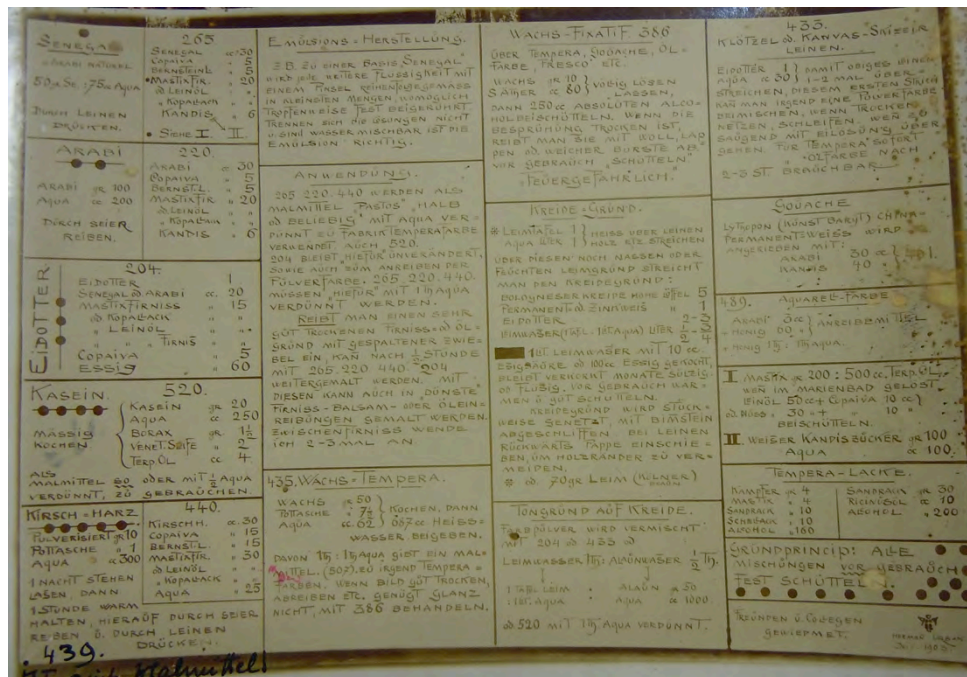 SENEGAL 265
ARABI NATUREL
50 gr Se. : 75 cc Aqua
DURCH LEINEN
DRÜCKEN.
SENEGAL cc. 30
COPAIVA " 5
BERNSTEINL " 5
MASTIXFIR. " 20
od LEINÖL "
" KOPALLACK "
KANDIS " 6
SIEHE I. II
ARABI 220.
ARABI gr 100
AQUA cc 200
DURCH SEIER
REIBEN.
ARABI cc. 30
COPAIVA " 5
BERNST.L. " 5
MASTIXFIR " 20
od LEINÖL "
" KOPALLACK "
KANDIS " 6
EIDOTTER 204.
EIDOTTER 1
SENEGAL od ARABI cc. 20
MASTIXFIRNISS " 15
od KOPALLACK "
" LEINÖL "
" FIRNIS "
COPAIVA " 5
ESSIG " 60
KASEIN. 520.
MÄSSIG
KOCHEN.
KASEIN gr 20
AQUA cc 250
BORAX gr 1½
VENET. SEIFE " 2
TERP.ÖL cc. 4
ALS
MALMITTEL SO ODER MIT ½ AQUA
VERDÜNNT, ZU GEBRAUCHEN.
KIRSCH-HARZ 440.
PULVERISIERT gr 10
POTTASCHE " 1
AQUA cc 300
1 NACHT STEHEN
LASSEN, DANN
1 STUNDE WARM
HALTEN, HIERAUF DURCH SEIER
REIBEN U. DURCH LEINEN
DRÜCKEN.
KIRSCHH. cc. 30
COPAIVA " 15
BERNST.L. " 15
MASTIXFIR. " 30
od LEINÖL "
" KOPALLACK "
AQUA " 25
439.
EMULSIONS-HERSTELLUNG.
Z.B. ZU EINER BASIS, SENEGAL
WIRD JEDE WEITERE FLÜSSIGKEIT MIT
EINEM PINSEL REIHENFOLGEGEMÄSS
IN KLEINSTEN MENGEN, WOMÖGLICH
TROPFENWEISE FEST BEIGERÜHRT.
TRENNEN SICH DIE LÖSUNGEN NICHT
U. SIND WASSERMISCHBAR IST DIE
EMULSION RICHTIG.
ANWENDUNG.
265. 220. 440 WERDEN ALS
MALMITTEL "PASTOS" "HALB
od BELIEBIG" MIT AQUA VER-
DÜNNT ZU FABRIKTEMPERAFARBE
VERWENDET. AUCH 520.
204 BLEIBT "HIEFÜR" UNVERÄNDERT,
SOWIE AUCH ZUM ANREIBEN DER
PULVERFARBE. 265. 220. 440.
MÜSSEN "HIEFÜR" MIT 1 Tl AQUA
VERDÜNNT WERDEN.
REIBT MAN EINEN SEHR
GUT TROCKENEN FIRNISS- od ÖL-
GRUND MIT GESPALTENER ZWIE-
BEL EIN, KAN NACH ½ STUNDE
MIT 265. 220. 440. 204
WEITERGEMALT WERDEN. MIT
DIESEN KANN AUCH IN DÜNSTE
FIRNISS- BALSAM- ODER ÖLEIN-
REIBUNGEN GEMALT WERDEN.
ZWISCHENFIRNISS WENDE
ICH 2-3 MAL AN.
435. WACHS-TEMPERA.
WACHS gr 50
POTTASCHE " 7½
AQUA cc. 62
KOCHEN, DANN
567 cc HEISS-
WASSER BEIGEBEN.
DAVON 1 Tl : 1 Tl AQUA GIBT EIN MAL-
MITTEL. (507). ZU IRGEND TEMPERA-
FARBEN. WENN BILD GUT TROCKEN,
ABREIBEN ETC. GENÜGT GLANZ
NICHT, MIT 386 BEHANDELN.
WACHS-FIXATIF 386
ÜBER TEMPERA, GOUACHE, ÖL-
FARBE, FRESCO ETC.
WACHS gr 10
S. ÄTHER cc 80
VÖLLIG LÖSEN
LASSEN,
DANN 250 cc ABSOLUTEN ALCO-
HOL BEISCHÜTTELN. WENN DIE
BESPRÜHUNG TROCKEN IST,
REIBT MAN SIE MIT WOLL, LAP
PEN od. WEICHER BÜRSTE AB.
VOR GEBRAUCH "SCHÜTTELN"
"FEUERGEFÄHRLICH."
KREIDE-GRUND.
LEIMTAFEL 1
AQUA LITER 1
HEISS ÜBER LEINEN
HOLZ ETZ. STREICHEN
ÜBER DIESEN NOCH NASSEN ODER
FEUCHTEN LEIMGRUND STREICHT
MAN DEN KREIDEGRUND:
BOLOGNESERKREIDE HOHE LÖFFEL 5
PERMANENT- od ZINKWEIS " 1
EIDOTTER 2-3
LEIMWASSER (1 TAFEL : 1 lit. AQUA) LITER ½-¾
1 lit. LEIMWASSER MIT 10 cc.
ESIGSÄURE od 100 cc ESSIG GEKOCHT,
BLEIBT VERKORKT MONATE SULZIG
od FLÜSSIG. VOR GEBRAUCH WÄR-
MEN U. GUT SCHÜTTELN.
KREIDEGRUND WIRD STÜCK-
WEISE GENETZT, MIT BIMSTEIN
ABGESCHLIFFEN. BEI LEINEN
RÜCKWÄRTS PAPPE EINSCHIE-
BEN, UM HOLZRÄNDER ZU VER-
MEIDEN.
od 70 gr LEIM (KÖLNER)
TONGRUND AUF KREIDE.
FARBPULVER WIRD VERMISCHT
MIT 204 od 433 od
LEIMWASSER 1 Tl : ALAUNWASSER ½ Tl.
1 TAFEL LEIM : ALAUN gr 50
1 lit. AQUA : AQUA cc 1000.
od 520 MIT 1 Tl AQUA VERDÜNNT.
433.
KLÖTZEL od. KANVAS-SKIZZIR
LEINEN.
EIDOTTER 1
AQUA cc 30
DAMIT OBIGES LEINEN
1-2 MAL ÜBER-
STREICHEN, DIESEM ERSTEN STRICH
KAN MAN IRGEND EINE PULVERFARBE
BEIMISCHEN, WENN TROCKEN
NETZEN, SCHLEIFEN, WEN ZU
SAUGEND MIT EILÖSUNG ÜBER-
GEHEN. FÜR TEMPERA SOFORT
" ÖLFARBE NACH
2-3 ST. BRAUCHBAR.
GOUACHE
LYTHOPON (KUNST BARYT) CHINA-
PERMANENTWEISS WIRD
ANGERIEBEN MIT:
ARABI 30 cc
KANDIS 40 "
489. AQUARELL-FARBE
ARABI 30 cc
HONIG 60 "
ANREIBEMITTEL
HONIG 1 Tl : 1 Tl AQUA.
I MASTIX gr 200 : 500 cc. TERP.ÖL,
WEN IM MARIENBAD GELÖST
LEINÖL 50 cc + COPAIVA 10 cc
od. NUSS. 30 " + " 10 "
BEISCHÜTTELN.
II. WEISER KANDISZUCKER gr 100
AQUA cc 100.
TEMPERA-LACKE.
KAMPFER gr 4
MASTIX " 4
SANDRAK " 10
SCHELLACK " 10
ALCOHOL " 160
SANDRAK gr 30
RICINUSÖL cc 10
ALCOHOL " 200
GRUNDPRINCIP: ALLE
MISCHUNGEN VOR GEBRAUCH
FEST SCHÜTTELN.
FREUNDEN U. COLLEGEN
GEWIDMET.